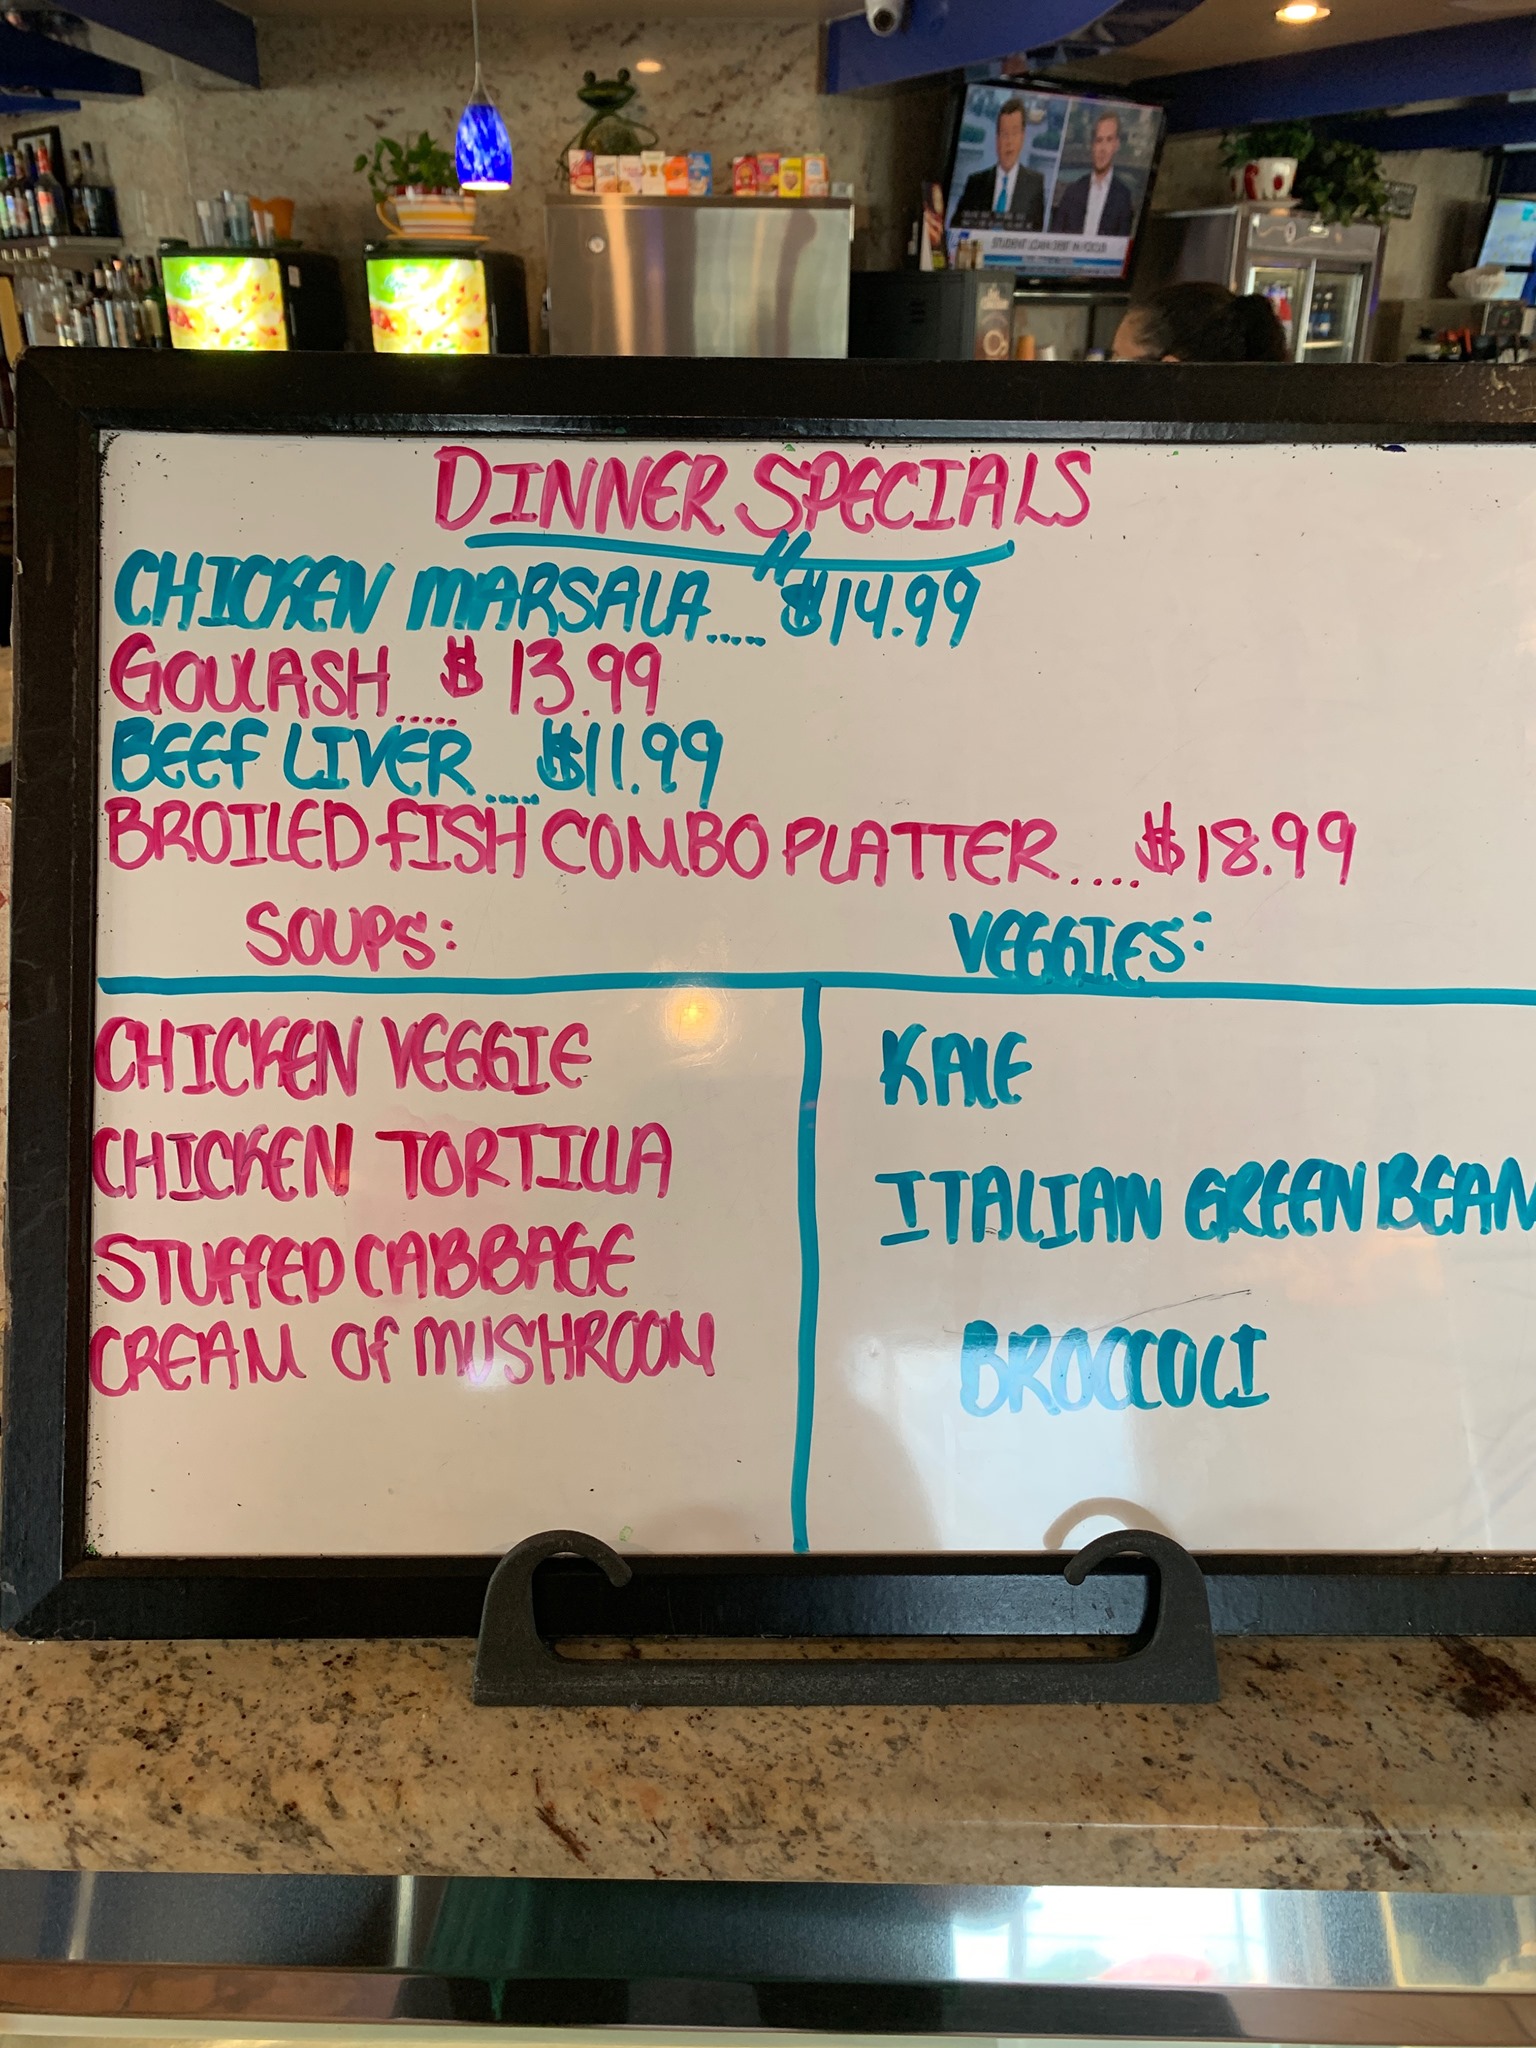 STUDENT LOAN DEBT IN FOCUS
DINNER SPECIALS
CHICKEN MARSALA..... $14.99
GOULASH..... $13.99
BEEF LIVER..... $11.99
BROILED FISH COMBO PLATTER.... $18.99
SOUPS:
VEGGIES:
CHICKEN VEGGIE
KALE
CHICKEN TORTILLA
ITALIAN GREEN BEAN
STUFFED CABBAGE
CREAM OF MUSHROOM
BROCCOLI